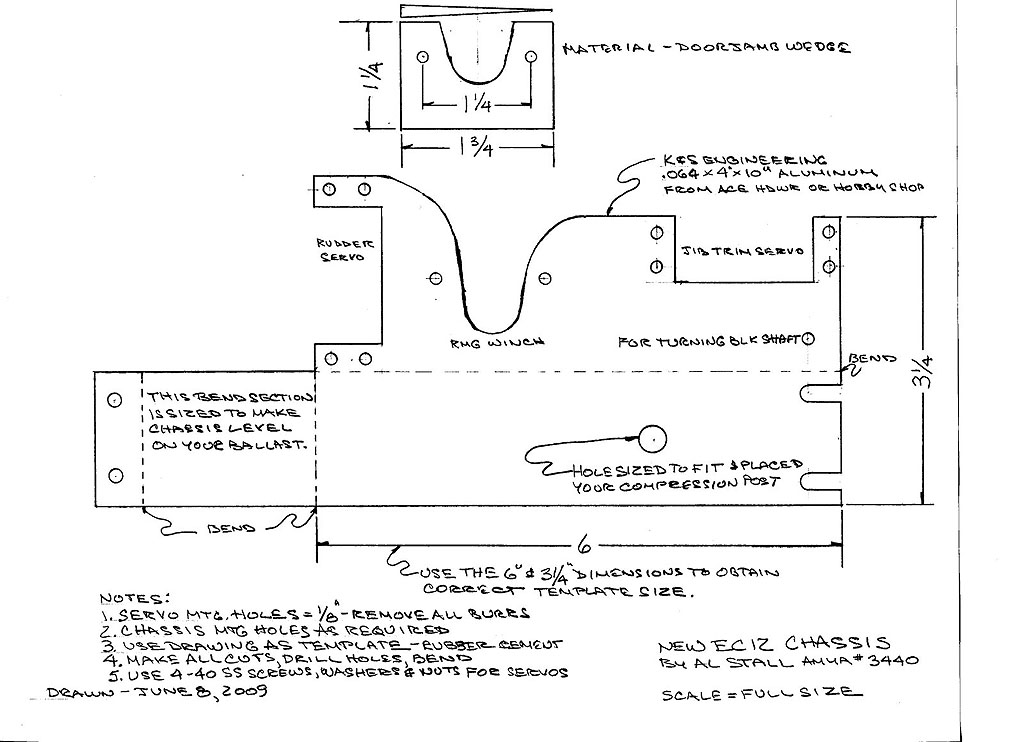 MATERIAL - DOORJAMB WEDGE
1 1/4
1 1/4
1 3/4
K&S ENGINEERING
.064 X 4" X 10" ALUMINUM
FROM ACE HDWR OR HOBBY SHOP
RUDDER
SERVO
JIB TRIM SERVO
RMG WINCH
FOR TURNING BLK SHAFT
BEND
3 1/4
THIS BEND SECTION
IS SIZED TO MAKE
CHASSIS LEVEL
ON YOUR BALLAST.
HOLE SIZED TO FIT & PLACED
YOUR COMPRESSION POST
BEND
6
USE THE 6" & 3 1/4" DIMENSIONS TO OBTAIN
CORRECT TEMPLATE SIZE.
NOTES:
1. SERVO MTG. HOLES = 1/8" - REMOVE ALL BURRS
2. CHASSIS MTG HOLES AS REQUIRED
3. USE DRAWING AS TEMPLATE - RUBBER CEMENT
4. MAKE ALL CUTS, DRILL HOLES, BEND
5. USE 4-40 SS SCREWS, WASHERS & NUTS FOR SERVOS
DRAWN - JUNE 8, 2009
NEW EC12 CHASSIS
BY AL STALL AMYA # 3440
SCALE = FULL SIZE